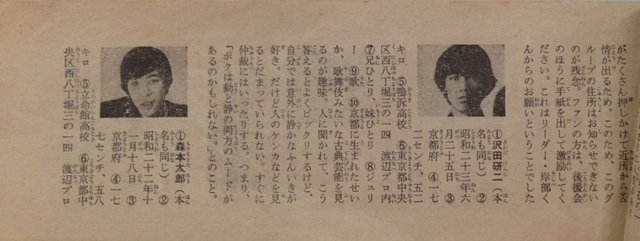 がたくさん押しかけて近所から苦
情が出るため。このため、このグ
ループの住所はお知らせできない
のが残念。ファンの方は、後援会
のほうに手紙を出して激励してく
ださい。これはリーダー・岸部く
んからのお願いということでした
①沢田研二（本
名も同じ）②
昭和二十三年六
月二十五日 ③
京都府 ④一七
二センチ、五二
キロ ⑤鴨浜高校 ⑥東京都中央
区西八丁堀三の一四 渡辺プロ内
⑦兄ひとり、妹ひとり ⑧ジュリ
ー ⑨歌 ⑩京都に生まれたせい
か、歌舞伎みたいな古典芸能を見
るのが趣味。人に聞かれて、こう
答えるとよくビックリするけど、
自分では意外に静かなふんいきが
好き。だけど人がケンカなどを見
るとだまっていられない。すぐに
仲裁にはいったりする。つまり、
「ボクは動と静の両方のムードが
あるのかもしれない」とのこと。
①森本太郎（本
名も同じ）②
昭和二十一年十
一月十八日 ③
京都府 ④一七
七センチ、五八
キロ ⑤立命館高校 ⑥東京都中
央区西八丁堀三の一四 渡辺プロ